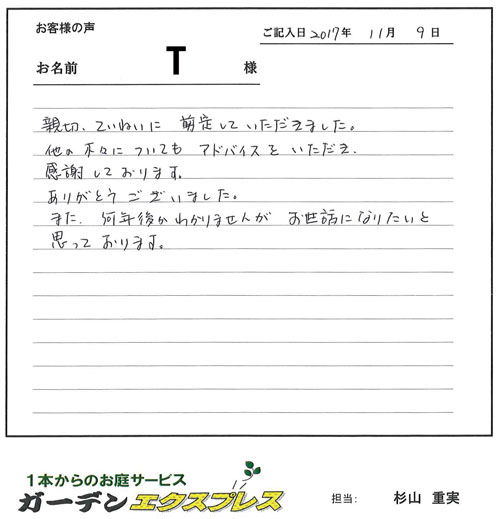 お客様の声
ご記入日 2017年 11月 9日
お名前 T 様
親切、ていねいに 剪定していただきました。
他の木々についても アドバイスをいただき、
感謝しております。
ありがとうございました。
また、何年後かわかりませんが お世話になりたいと
思っております。
1本からのお庭サービス
ガーデンエクスプレス
担当: 杉山 重実